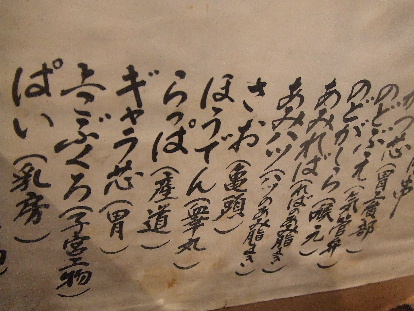 のどぶえ(胃寅部)
のどがしら(気管弁)
あみればら(喉元)
あみハツ(ハツのお脂まき)
さお(亀頭)
ほうでん(睾丸)
らっぱ(産道)
ギャラ芯(胃)
こぶくろ(子宮上物)
ぱい(乳房)